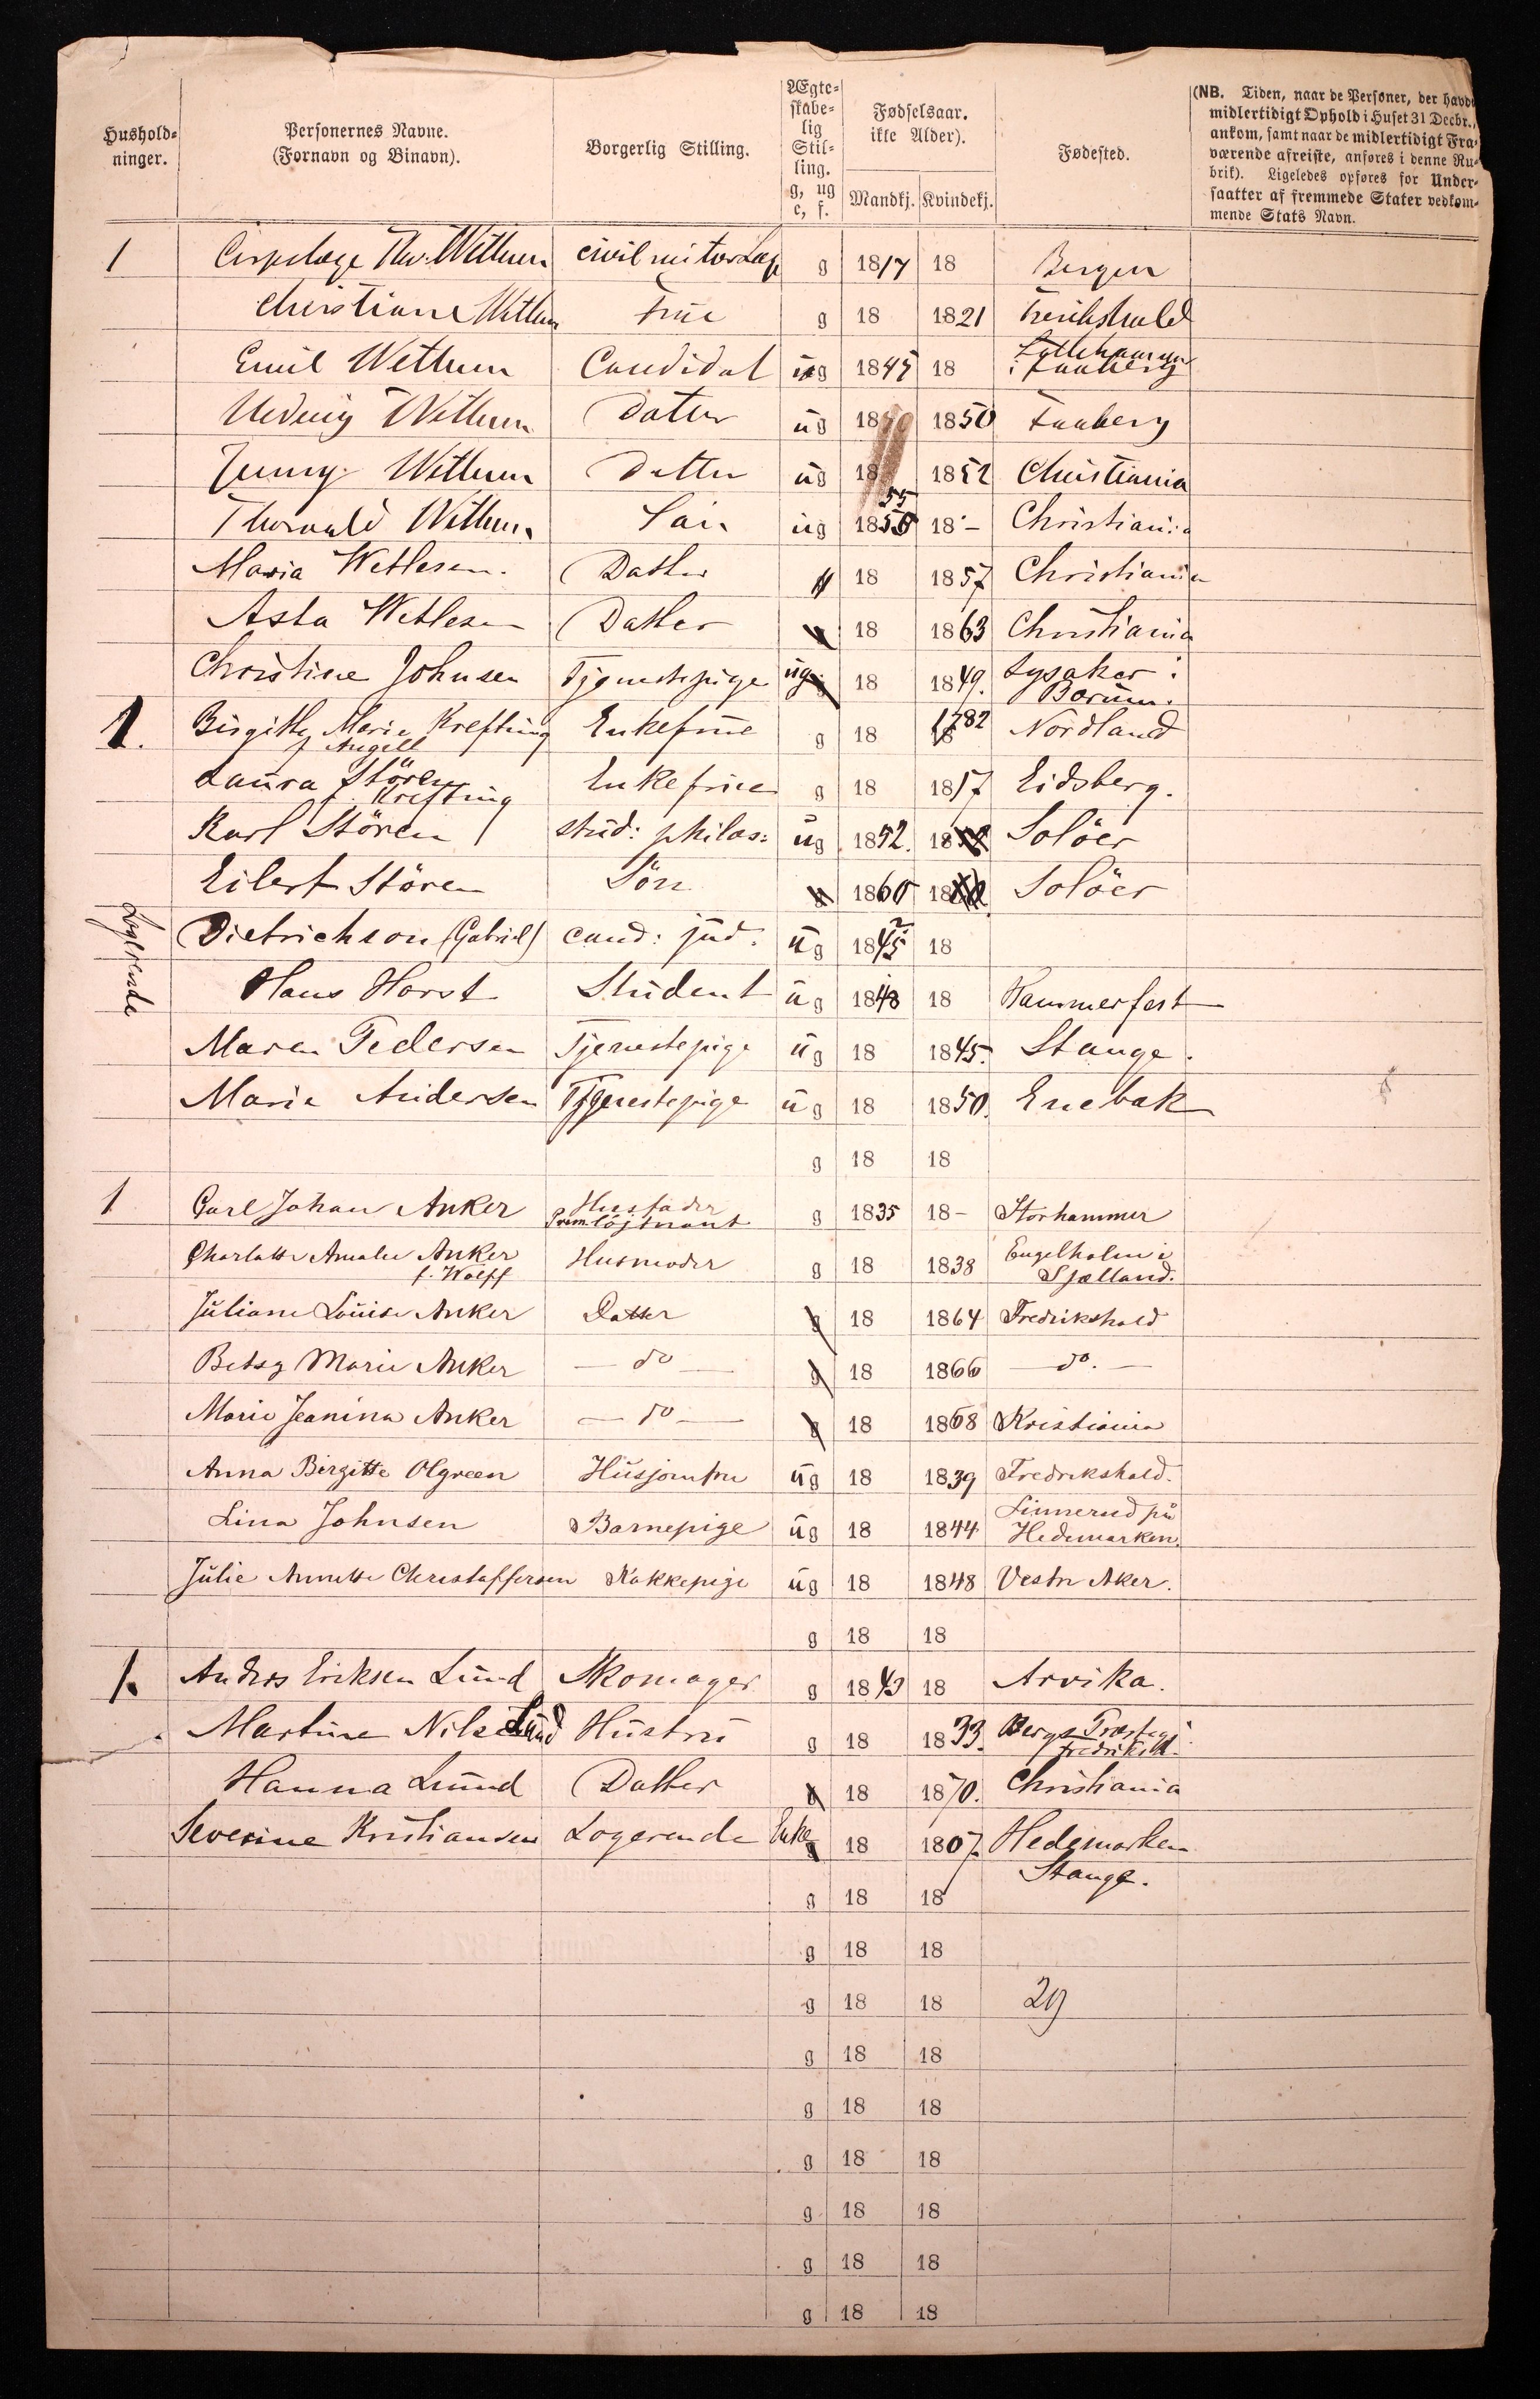 Hushold-
ninger.
Personernes Navne.
(Fornavn og Binavn).
Borgerlig Stilling.
Ægte-
skabe-
lig
Stil-
ling.
g, ug
e, f.
Fødselsaar.
ikke Alder).
Mandkj. Kvindekj.
Fødested.
(NB. Tiden, naar de Personer, der havde
midlertidigt Ophold i Huset 31 Decbr.,
ankom, samt naar de midlertidigt Fra-
værende afreiste, anføres i denne Ru-
brik). Ligeledes opføres for Under-
saatter af fremmede Stater vedkom-
mende Stats Navn.
1 g 1817 18 Bergen
Christiane Frue g 18 1821
Emil Candidat ug 1845 18 i Faaberg
Hedvig Datter ug 18 1850 Faaberg
Jenny Datter ug 18 1852 Christiania
55
Thorvald ug 18 18 - Christiania
Maria Wetlesen. Datter 18 1857 Christiania
Asta Wetlesen Datter 18 1863 Christiania
Christine Johnsen Tjenestepige ug 18 1849. Lysaker i
Bærum.
1. Birgitte Marie Krefting Enkefrue g 18 1782 Nordland
f Angell
Laura Stören Enkefrue g 18 1817 Eidsberg.
f. Krefting
Karl Stören stud: philos: ug 1852. 18 Solöer
Eilert Stören Sön 1860 18 Solöer
Logerende
Dietrichson (Gabriel) cand: jud. ug 1845 ? 18
Hans Horst Student ug 1848 18 Hammerfest
Maren Pedersen Tjenestepige ug 18 1845. Stange.
Marie Andersen Tjenestepige ug 18 1850. Enebak
g 18 18
1 Carl Johan Anker Husfader g 1835 18 - Storhammer
Premlöjtnant
Charlotte Amalie Anker Husmoder g 18 1838 Engelholm i
f. Wolff Sjælland.
Juliane Louise Anker Datter g 18 1864 Fredrikshald
Betsy Marie Anker - do - g 18 1866 - do. -
Marie Jeanina Anker - do - g 18 1868 Kristiania
Anna Birgitte Olgreen Husjomfru ug 18 1839 Fredrikshald.
Lina Johnsen Barnepige ug 18 1844 Linnerud på
Hedemarken.
Julie Annette Christoffersen Kokkepige ug 18 1848 Vestre Aker.
g 18 18
1. Anders Eriksen Lund Skomager g 1843 18 Arvika.
Martine Lund Hustru g 18 1833. Bergs Præstegj.
Fredrikshld.
Hanna Lund Datter g 18 1870. Christiania
Severine Kristiansen Logerende Enke g 18 1807. Hedemarken
Stange.
g 18 18
g 18 18
g 18 18 29
g 18 18
g 18 18
g 18 18
g 18 18
g 18 18
g 18 18